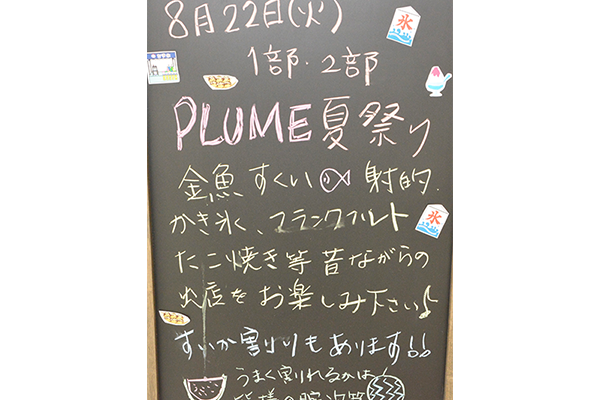 8月22日(火)
1部・2部
PLUME夏祭り
金魚すくい 射的、
かき氷、フランクフルト
たこ焼き等 昔ながらの
出店をお楽しみ下さい♪
すいか割りもあります!!
うまく割れるかは!
皆様の腕次第
氷
氷